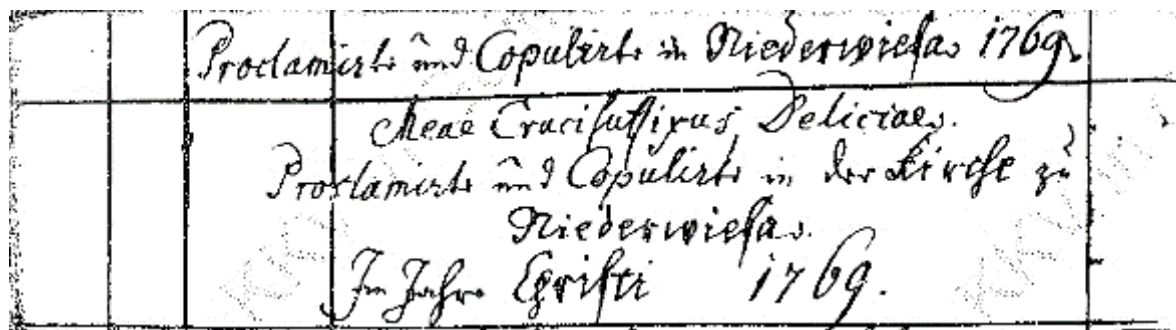 Proclamirte und Copulirte in Niederwiesa 1769.
Meae Crucisuffixus Deliciae.
Proclamirte und Copulirte in der Kirche zu
Niederwiesa.
Im Jahre Christi 1769.